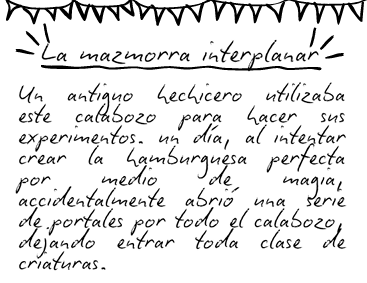 La mazmorra interplanar
Un antiguo hechicero utilizaba
este calabozo para hacer sus
experimentos. un día, al intentar
crear la hamburguesa perfecta
por medio de magia,
accidentalmente abrió una serie
de portales por todo el calabozo,
dejando entrar toda clase de
criaturas.